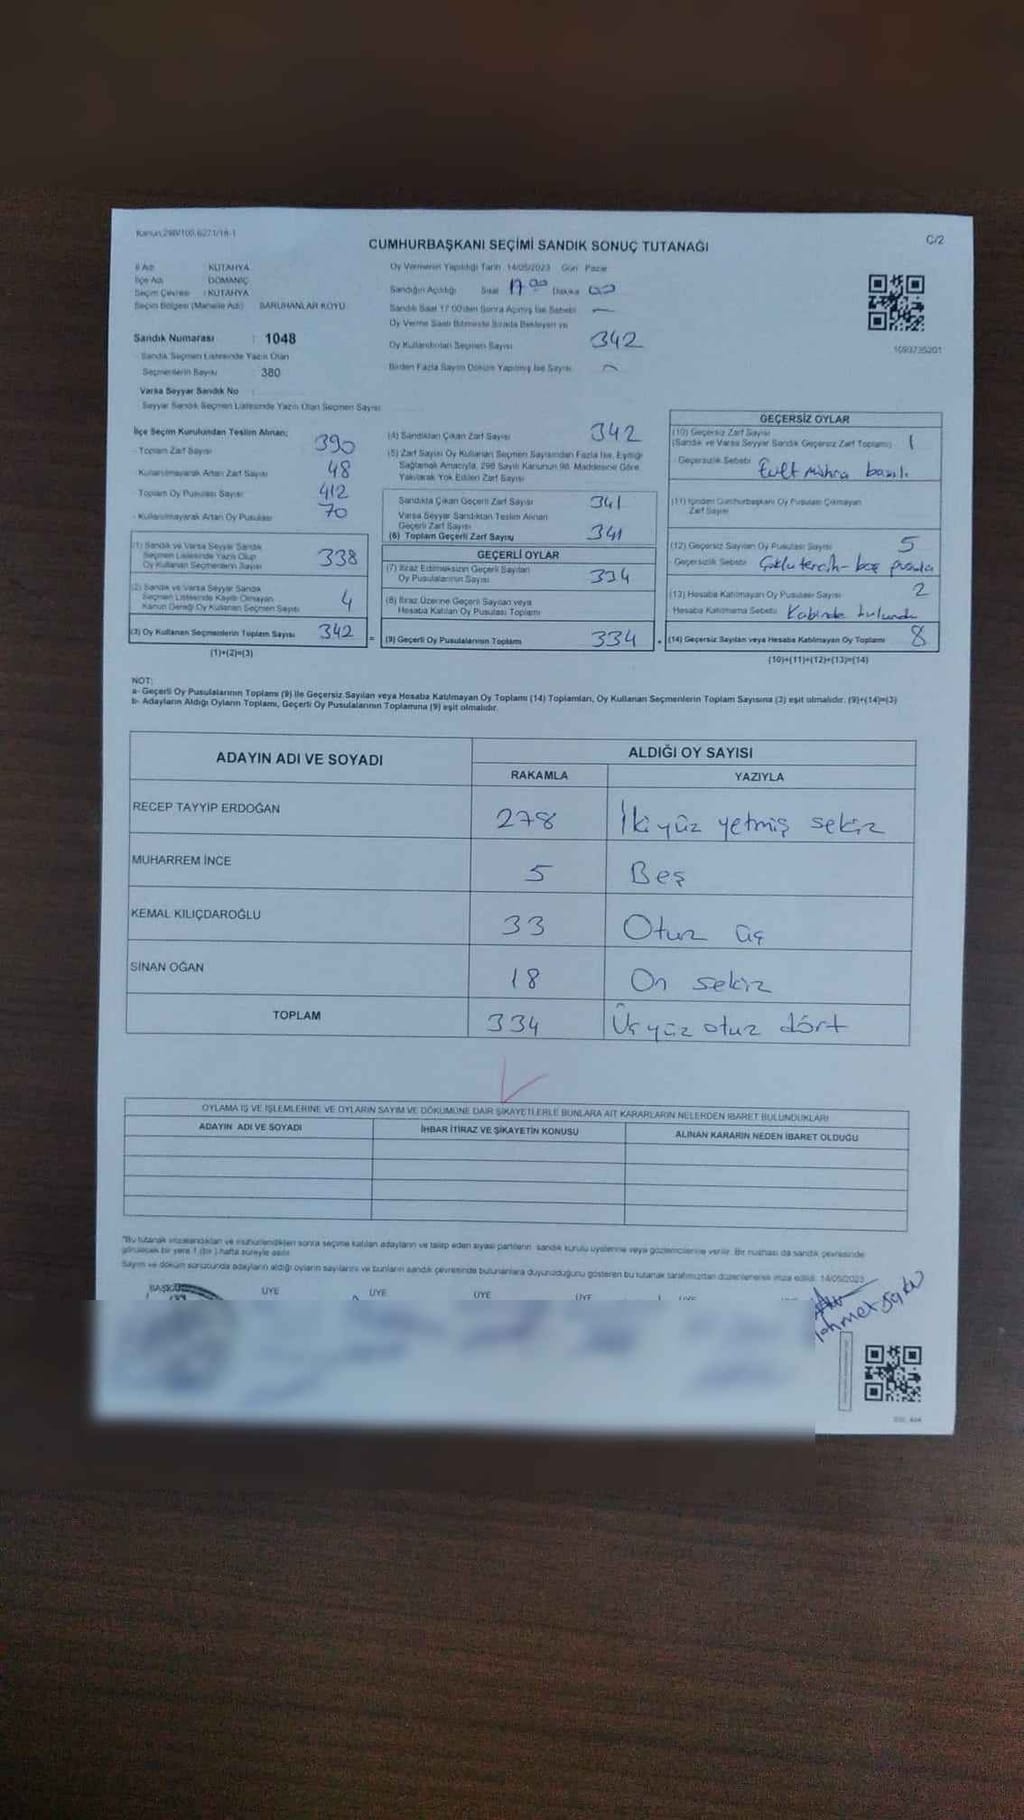 Kanun:298/100,6271/18-1
CUMHURBAŞKANI SEÇİMİ SANDIK SONUÇ TUTANAĞI
C/2
İl Adı : KÜTAHYA
İlçe Adı : DOMANİÇ
Seçim Çevresi : KÜTAHYA
Seçim Bölgesi (Mahalle Adı) : SARUHANLAR KÖYÜ
Sandık Numarası : 1048
Sandık Seçmen Listesinde Yazılı Olan
Seçmenlerin Sayısı : 380
Varsa Seyyar Sandık No :
Seyyar Sandık Seçmen Listesinde Yazılı Olan Seçmen Sayısı :
Oy Vermenin Yapıldığı Tarih 14/05/2023 Gün Pazar
Sandığın Açıldığı Saat 17 00 Dakika 00
Sandık Saat 17:00'den Sonra Açılmış İse Sebebi —
Oy Verme Saati Bitiminde Sırada Bekleyen ve
Oy Kullandırılan Seçmen Sayısı 342
Birden Fazla Sayım Döküm Yapılmış İse Sayısı
1093735201
İlçe Seçim Kurulundan Teslim Alınan;
- Toplam Zarf Sayısı 390
- Kullanılmayarak Artan Zarf Sayısı 48
- Toplam Oy Pusulası Sayısı 412
- Kullanılmayarak Artan Oy Pusulası 70
(1) Sandık ve Varsa Seyyar Sandık
Seçmen Listesinde Yazılı Olup
Oy Kullanan Seçmenlerin Sayısı 338
(2) Sandık ve Varsa Seyyar Sandık
Seçmen Listesinde Kayıtlı Olmayan
Kanun Gereği Oy Kullanan Seçmen Sayısı 4
(3) Oy Kullanan Seçmenlerin Toplam Sayısı 342 =
(1)+(2)=(3)
(4) Sandıktan Çıkan Zarf Sayısı 342
(5) Zarf Sayısı Oy Kullanan Seçmen Sayısından Fazla İse, Eşitliği
Sağlamak Amacıyla, 298 Sayılı Kanunun 98. Maddesine Göre
Yakılarak Yok Edilen Zarf Sayısı
Sandıkta Çıkan Geçerli Zarf Sayısı 341
Varsa Seyyar Sandıktan Teslim Alınan
Geçerli Zarf Sayısı
(6) Toplam Geçerli Zarf Sayısı 341
GEÇERLİ OYLAR
(7) İtiraz Edilmeksizin Geçerli Sayılan
Oy Pusulalarının Sayısı 334
(8) İtiraz Üzerine Geçerli Sayılan veya
Hesaba Katılan Oy Pusulası Toplamı
(9) Geçerli Oy Pusulalarının Toplamı 334 +
GEÇERSİZ OYLAR
(10) Geçersiz Zarf Sayısı
(Sandık ve Varsa Seyyar Sandık Geçersiz Zarf Toplamı) 1
Geçersizlik Sebebi basılı
(11) İçinden Cumhurbaşkanı Oy Pusulası Çıkmayan
Zarf Sayısı
(12) Geçersiz Sayılan Oy Pusulası Sayısı 5
Geçersizlik Sebebi Çoklu tercih - boş pusula
(13) Hesaba Katılmayan Oy Pusulası Sayısı 2
Hesaba Katılmama Sebebi Kabinde bulundu
(14) Geçersiz Sayılan veya Hesaba Katılmayan Oy Toplamı 8
(10)+(11)+(12)+(13)=(14)
NOT:
a- Geçerli Oy Pusulalarının Toplamı (9) ile Geçersiz Sayılan veya Hesaba Katılmayan Oy Toplamı (14) Toplamları, Oy Kullanan Seçmenlerin Toplam Sayısına (3) eşit olmalıdır. (9)+(14)=(3)
b- Adayların Aldığı Oyların Toplamı, Geçerli Oy Pusulalarının Toplamına (9) eşit olmalıdır.
ADAYIN ADI VE SOYADI
ALDIĞI OY SAYISI
RAKAMLA YAZIYLA
RECEP TAYYİP ERDOĞAN 278 İkiyüz yetmiş sekiz
MUHARREM İNCE 5 Beş
KEMAL KILIÇDAROĞLU 33 Otuz üç
SİNAN OĞAN 18 On sekiz
TOPLAM 334 Üç yüz otuz dört
OYLAMA İŞ VE İŞLEMLERİNE VE OYLARIN SAYIM VE DÖKÜMÜNE DAİR ŞİKAYETLERLE BUNLARA AİT KARARLARIN NELERDEN İBARET BULUNDUKLARI
ADAYIN ADI VE SOYADI İHBAR İTİRAZ VE ŞİKAYETİN KONUSU ALINAN KARARIN NEDEN İBARET OLDUĞU
"Bu tutanak imzalandıktan ve mühürlendikten sonra seçime katılan adayların ve talep eden siyasi partilerin sandık kurulu üyelerine veya gözlemcilerine verilir. Bir nüshası da sandık çevresinde
görülecek bir yere 1 (bir) hafta süreyle asılır.
Sayım ve döküm sonucunda adayların aldığı oyların sayılarını ve bunların sandık çevresinde bulunanlara duyurulduğunu gösteren bu tutanak tarafımızdan düzenlenerek imza edildi. 14/05/2023
BAŞKAN ÜYE ÜYE ÜYE ÜYE ÜYE